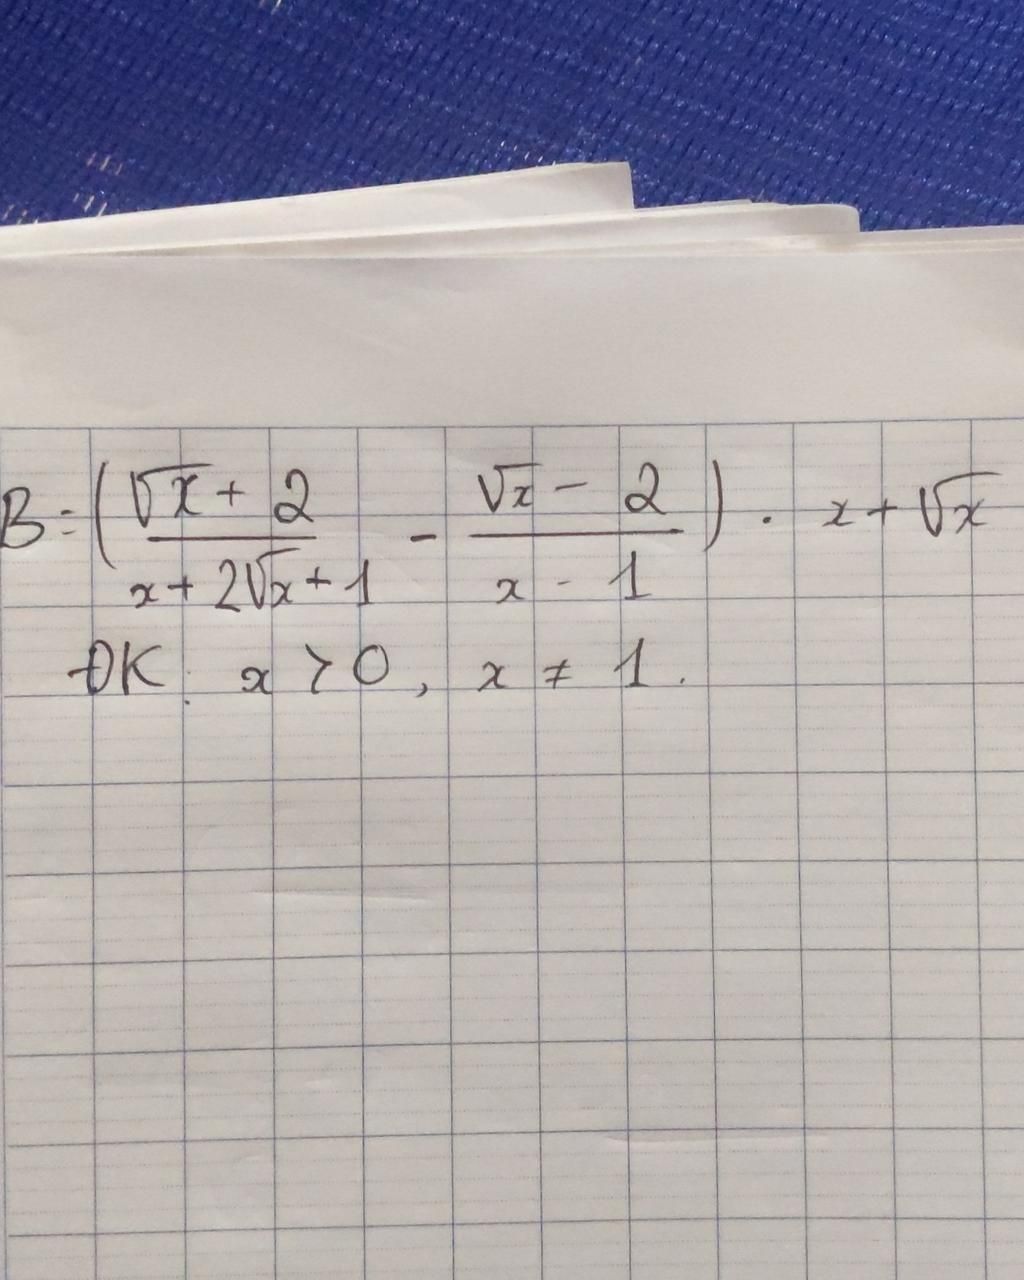 B = ( (√x + 2)/(x + 2√x + 1) - (√x - 2)/(x - 1) ) . x + √x
ĐK: x > 0, x ≠ 1.